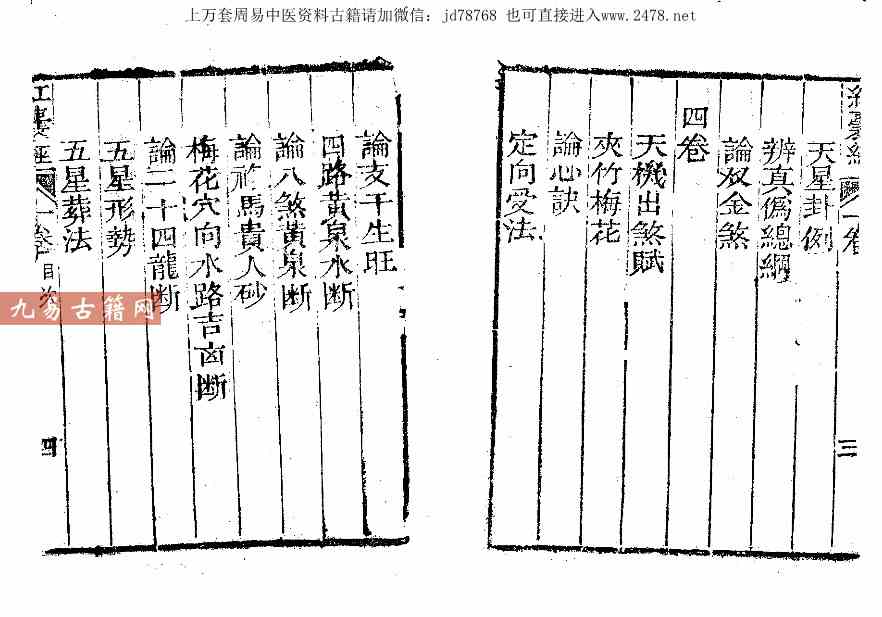 上万套周易中医资料古籍请加微信: jd78768 也可直接进入www.2478.net
一卷
三
天星卦例
辨真偽總綱
論双金煞
四卷
天機出煞賦
夾竹梅花
論心訣
定向受法
論支干生旺
四路黃泉水断
論八煞黃泉断
論祿馬貴人砂
梅花穴向水路吉凶断
論二十四龍断
五星形勢
五星葬法
一卷
目次
四
九易古籍网